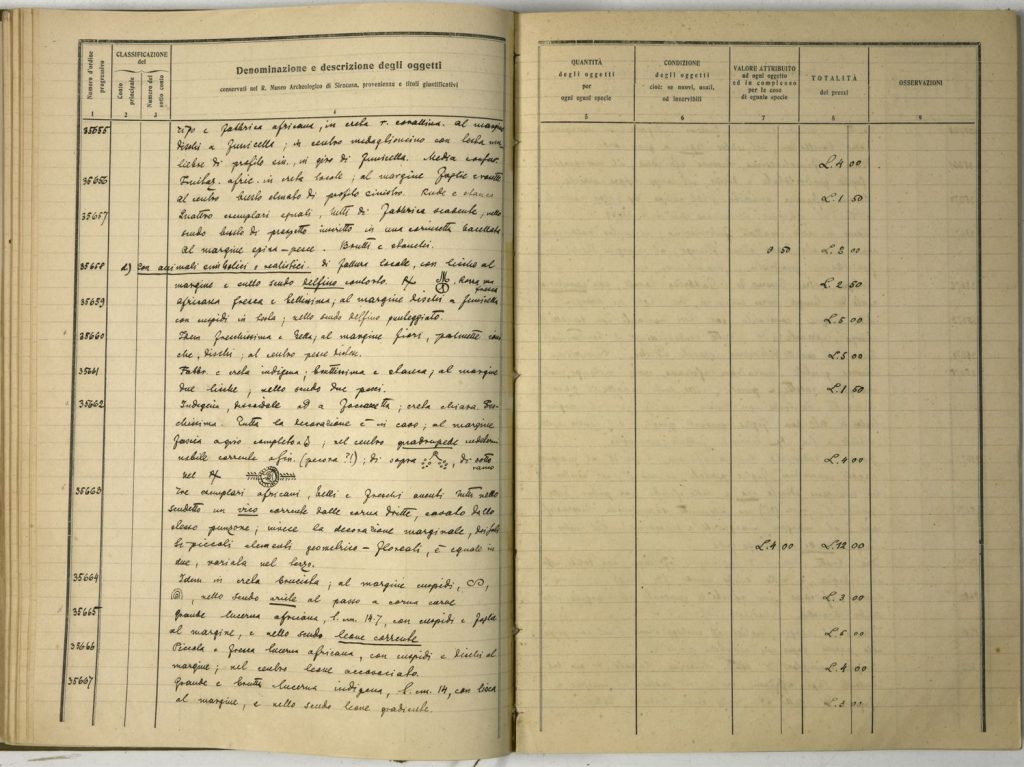 Numero d'ordine progressivo
CLASSIFICAZIONE
del
Conto principale
Numero del sotto conto
Denominazione e descrizione degli oggetti
conservati nel R. Museo Archeologico di Siracusa, provenienza e titoli giustificativi
1 2 3 4
35655 Tipo e fabbrica africana, in creta r. corallina. Al margine
dischi a funicella; in centro medaglioncino con testa mu-
liebre di profilo sin., in giro di funicella. Media conser.
35656 africa. in creta locale; al margine foglie e rosette
al centro busto di profilo sinistro. Rude e stanca
35657 Quattro esemplari eguali, tutti di fabbrica scadente; nello
scudo busto di prospetto inserito in una cornicetta baccellata
al margine spina-pesce. Brutti e stanchi.
35658 d) Con animali simbolici e realistici. di fattura locale, con lische al
margine e nello scudo delfino contorto. Rossa, ma
fresca
35659 africana fresca e bellissima; al margine dischi a funicella
con cuspidi in testa; nello scudo delfino punteggiato.
35660 Idem freschissima e bella; al margine fiori, palmette
che, dischi; al centro pesce
35661 Fabbr. e creta indigena; bruttissima e stanca; al margine
due lische, nello scudo due pesci.
35662 Indigena, discoidale ad a; creta chiara. Fre-
schissima. Tutta la decorazione è in cavo; al margine
fascia a giro completo a S; nel centro quadrupede indeter-
nabile corrente a sin. (pecora ?!); di sopra, di sotto
ramo
nel
35663 Tre esemplari africani, belli e freschi aventi tutti nello
scudetto un corrente dalle corna dritte, cavato dallo
stesso punzone; invece la decorazione marginale, dei soli-
ti piccoli elementi geometrico-floreati, è eguale in
due, variata nel terzo.
35664 Idem in creta bruciata; al margine cuspidi,
, nello scudo ariete al passo a corna curve
35665 Grande lucerna africana, l. cm. 14.7, con cuspidi e foglie
al margine, e nello scudo leone corrente
35666 Piccola e fresca lucerna africana, con cuspidi e dischi al
margine; nel centro leone accovacciato.
35667 Grande e brutta lucerna indigena, l. cm. 14, con lisca
al margine, e nello scudo leone gradiente.
QUANTITÀ
degli oggetti
per
ogni ogni specie
CONDIZIONE
degli oggetti
cioè: se nuovi, usati,
od inservibili
VALORE ATTRIBUITO
ad ogni oggetto
ed in complesso
per le cose
di eguale specie
TOTALITÀ
dei prezzi
OSSERVAZIONI
5 6 7 8 9
L. 4 00
L. 1 50
0 50 L. 2 00
L. 2 50
L. 5 00
L. 5 00
L. 1 50
L. 4 00
L. 4 00 L. 12 00
L. 3 00
L. 5 00
L. 4 00
L. 3 00